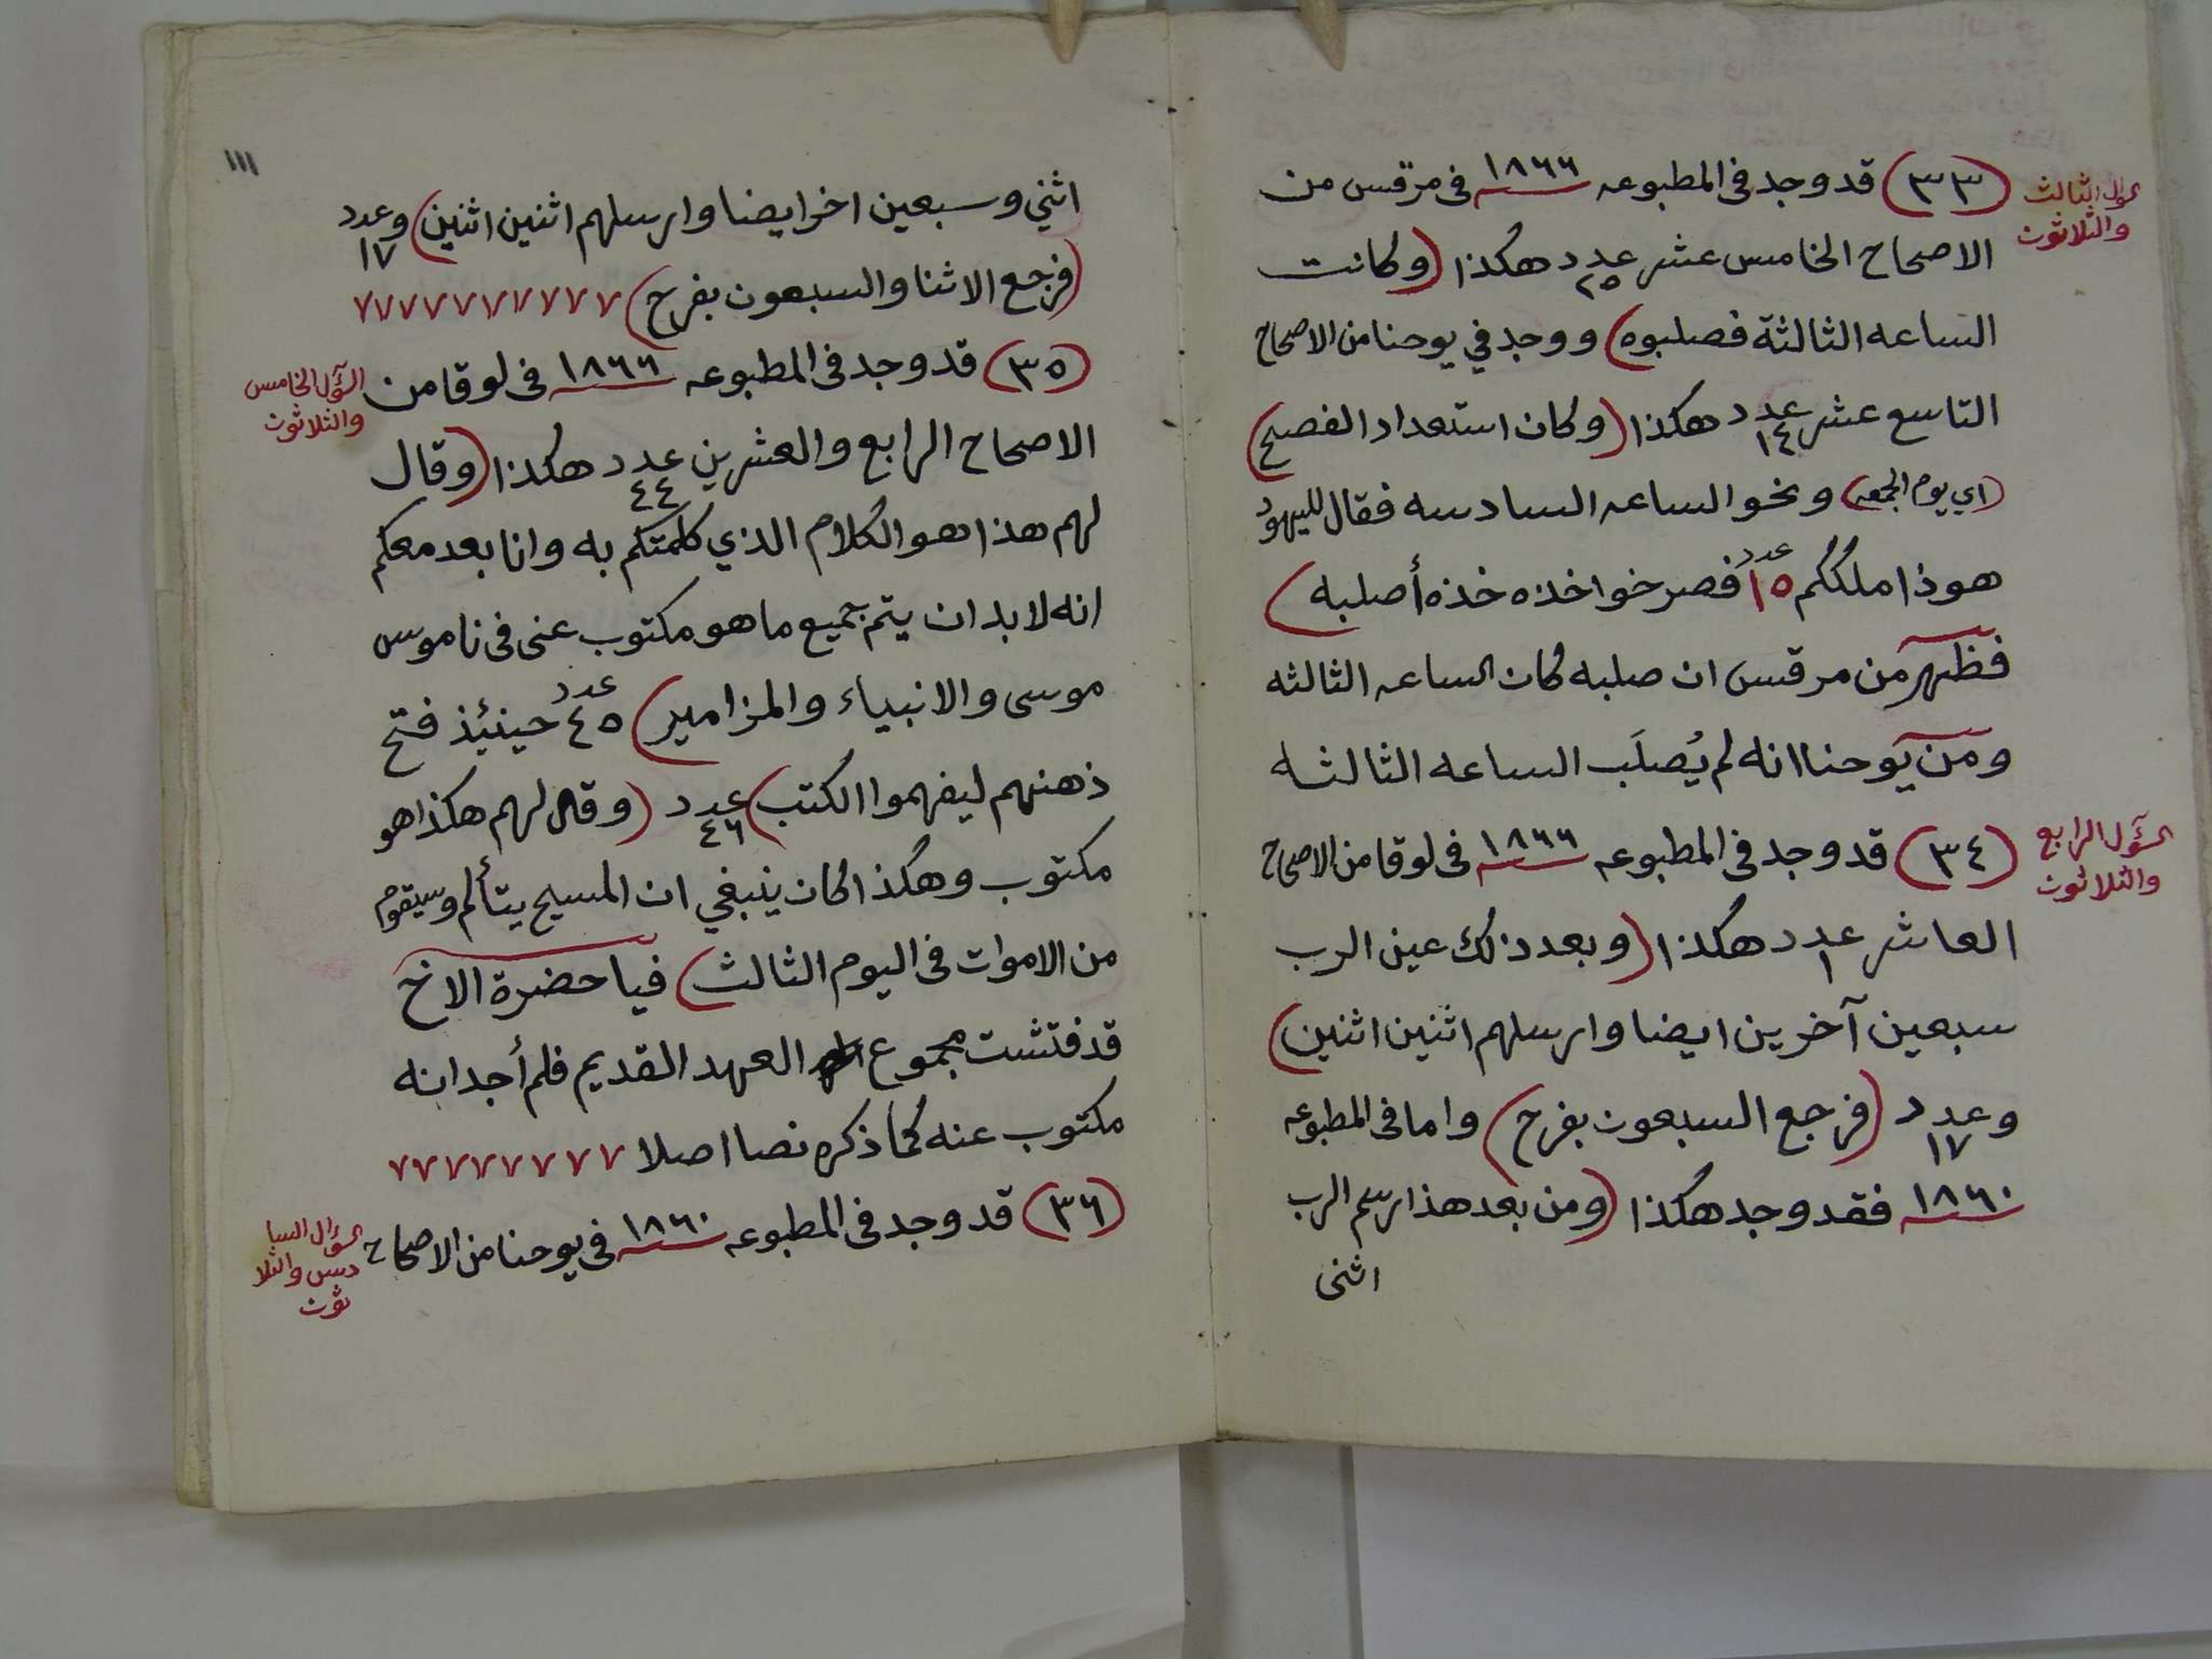 السؤال الثالث
والثلاثون
(٣٣) قد وجد فى المطبوعه ١٨٦٦ فى مرقس من
الاصحاح الخامس عشر عدد ٢٥ هكذا (وكانت
الساعه الثالثة فصلبوه) ووجد في يوحنا من الاصحاح
التاسع عشر عدد ١٤ هكذا (وكان استعداد الفصح)
(اي يوم الجمعه) ونحو الساعه السادسه فقال لليهود
هوذا ملككم عدد ١٥ فصرخوا خذه خذه أصلبه)
فظهر من مرقس ان صلبه كان الساعه الثالثه
ومن يوحنا انه لم يُصلَب الساعه الثالثه
السؤل الرابع
والثلاثون
(٣٤) قد وجد فى المطبوعه ١٨٦٦ فى لوقا من الاصحاح
العاشر عدد ١ هكذا (وبعد ذلك عين الرب
سبعين آخرين ايضا وارسلهم اثنين اثنين)
وعدد ١٧ (فرجع السبعون بفرح) واما فى المطبوعه
١٨٦٠ فقد وجد هكذا (ومن بعد هذا رسم الرب
اثنى
١١١
اثني وسبعين اخر ايضا وارسلهم اثنين اثنين) وعدد ١٧
(فرجع الاثنا والسبعون بفرح) ٧٧٧٧٧٧٧٧٧٧
السؤل الخامس
والثلاثون
(٣٥) قد وجد فى المطبوعه ١٨٦٦ فى لوقا من
الاصحاح الرابع والعشرين عدد ٤٤ هكذا (وقال
لهم هذا هو الكلام الذي كلمتكم به وانا بعد معكم
انه لا بد ان يتم جميع ما هو مكتوب عنى فى ناموس
موسى والانبياء والمزامير) عدد ٤٥ حينئذ فتح
ذهنهم ليفهموا الكتب) عدد ٤٦ (وقال لهم هكذا هو
مكتوب وهكذا كان ينبغي ان المسيح يتألم وسيقوم
من الاموات فى اليوم الثالث) فيا حضرة الاخ
قد فتشت مجموع العهد القديم فلم أجد انه
مكتوب عنه كما ذكره نصا اصلا ٧٧٧٧٧٧٧٧
السؤال السا
دس والثلا
ثون
(٣٦) قد وجد فى المطبوعه ١٨٦٠ فى يوحنا من الاصحاح